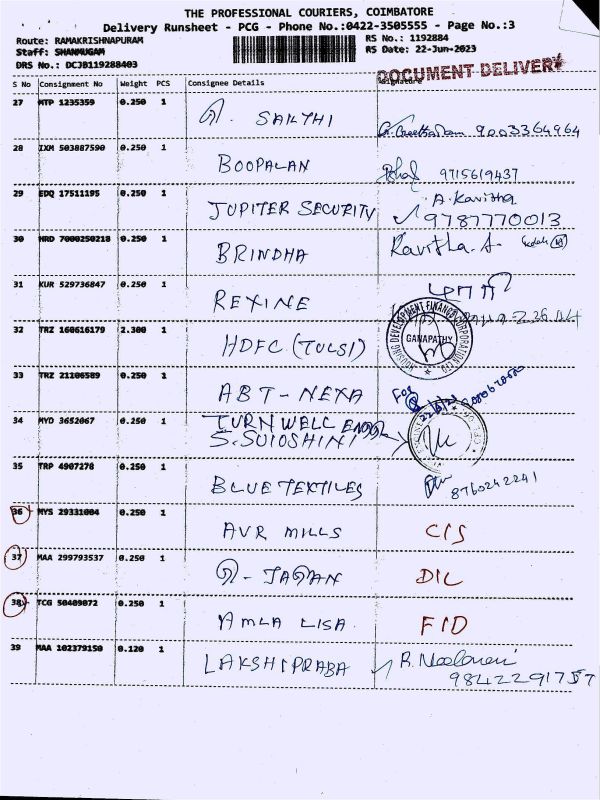 THE PROFESSIONAL COURIERS, COIMBATORE
Delivery Runsheet - PCG - Phone No.:0422-3505555 - Page No.:3
Route: RAMAKRISHNAPURAM
RS No.: 1192884
Staff: SHANMUGAM
RS Date: 22-Jun-2023
DRS No.: DCJB119288403
DOCUMENT DELIVERY
S No Consignment No Weight PCS Consignee Details Signature
27 MTP 1235359 0.250 1 SAKTHI 9003364964
28 IXM 503887590 0.250 1 BOOPALAN 9715619437
29 EDQ 17511195 0.250 1 JUPITER SECURITY A. Kavitha
9787770013
30 HRD 7000250218 0.250 1 BRINDHA Kavitha. A.
31 KUR 529736847 0.250 1 REXINE
32 TRZ 160616179 2.300 1 HDFC (TULSI)
HOUSING DEVELOPMENT FINANCE CORPORATION LTD
GANAPATHY
33 TRZ 21106589 0.250 1 ABT - NEXA For
34 MYD 3652067 0.250 1 TURNWELL ENGG
S. SUIOSHINI
35 TRP 4907278 0.250 1 BLUE TEXTILES 8760242241
36 MYS 29331004 0.250 1 AVR MILLS C/S
37 MAA 299793537 0.250 1 JAGAN D/L
38 TCG 50409072 0.250 1 AMLA LISA. F/D
39 MAA 102379150 0.120 1 LAKSHIPRABA R.
9842291757